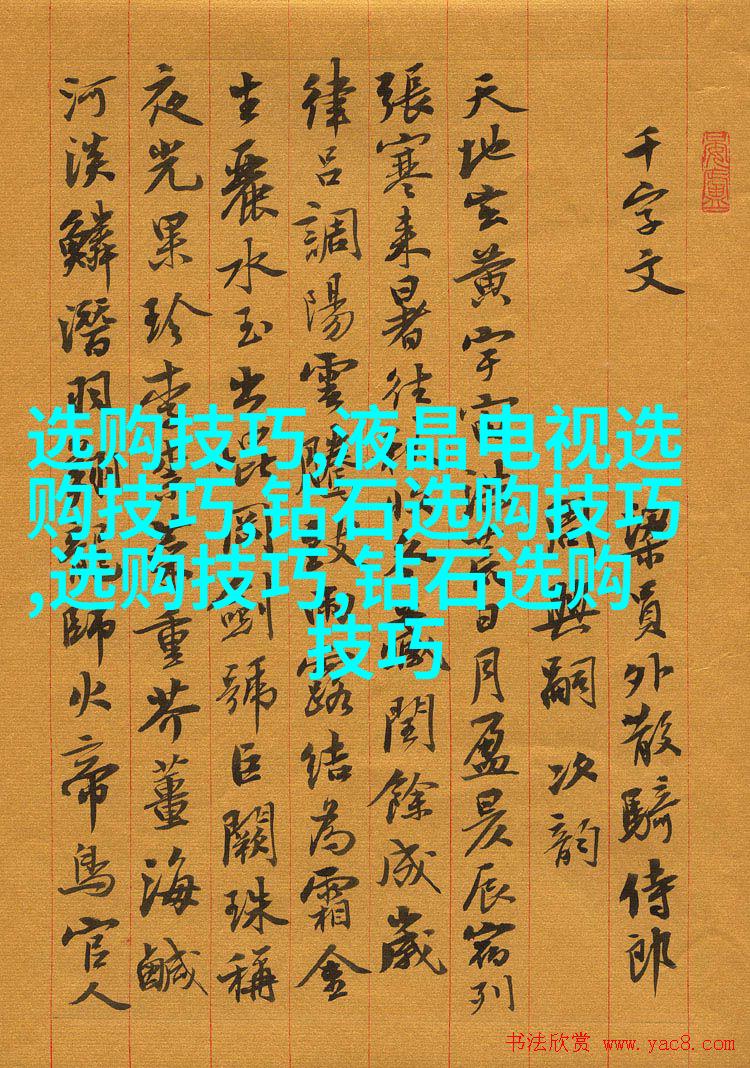 千字文
梁員外散騎侍郎
周興嗣次韵
天地玄黃宇宙洪荒日月盈昃辰宿列
張寒来暑往秋收冬藏閏餘成歲
律呂調陽雲騰致雨露結為霜金
生麗水玉出崑岡劍號巨闕珠稱
夜光果珍李柰菜重芥薑海鹹
河淡鱗潛羽翔龍師火帝鳥官人
选购技巧,液晶电视选
购技巧,钻石选购技巧
,选购技巧,钻石选购
技巧
书法欣赏 www.yac8.com